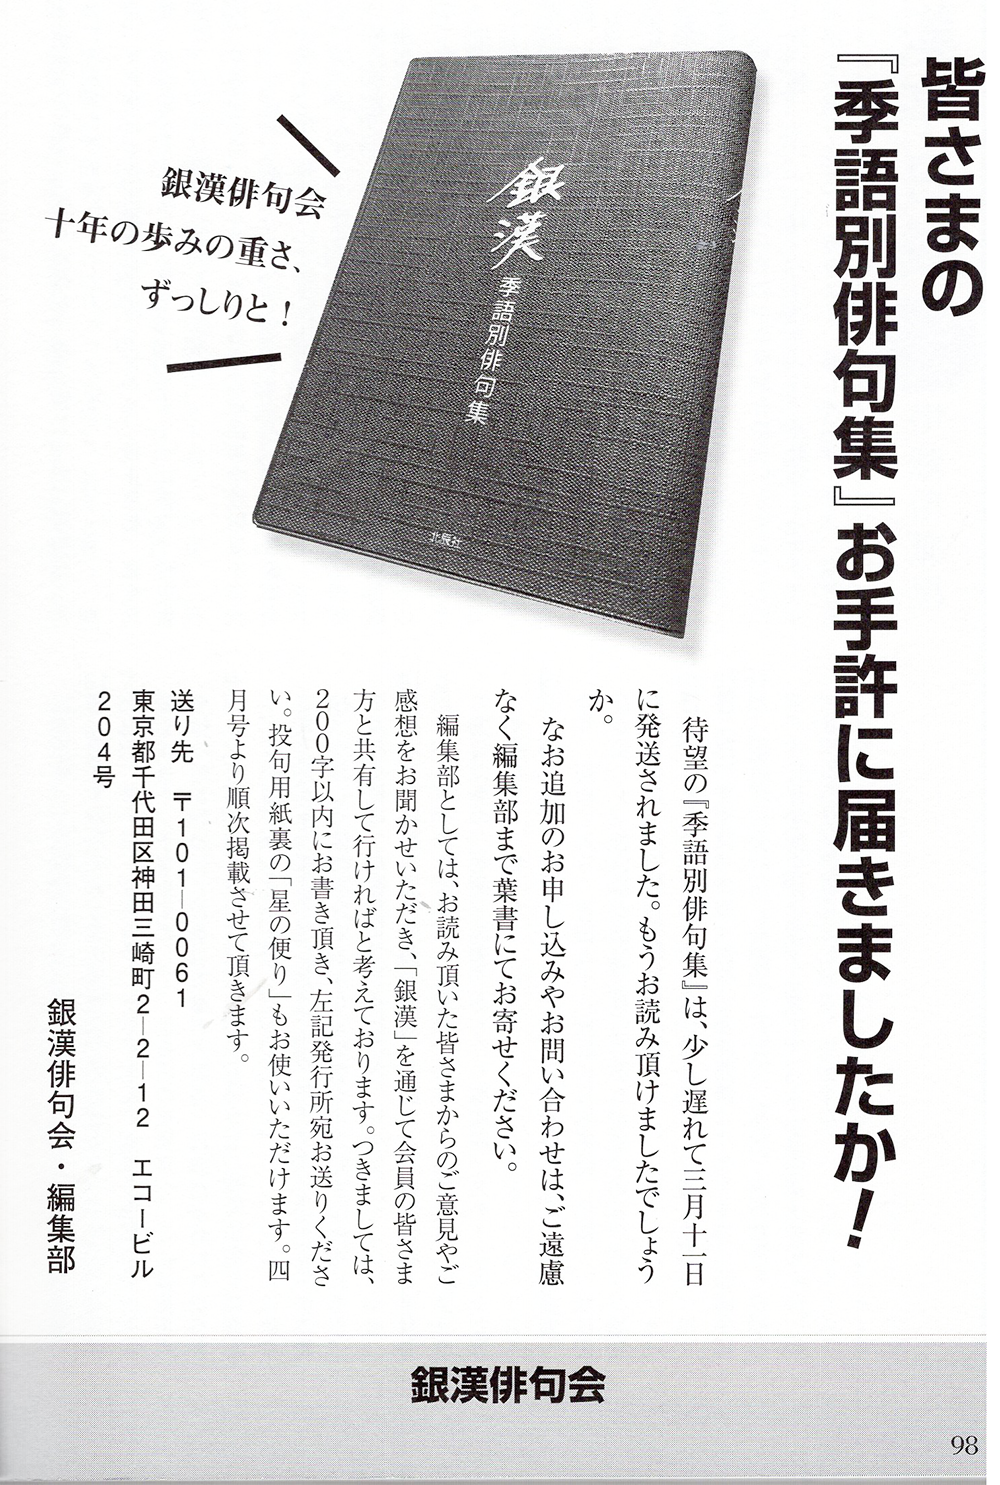 皆さまの
『季語別俳句集』お手許に届きましたか！
銀漢
季語別俳句集
北辰社
銀漢俳句会
十年の歩みの重さ、
ずっしりと！
待望の『季語別俳句集』は、少し遅れて三月十一日
に発送されました。もうお読み頂けましたでしょう
か。
なお追加のお申し込みやお問い合わせは、ご遠慮
なく編集部まで葉書にてお寄せください。
編集部としては、お読み頂いた皆さまからのご意見やご
感想をお聞かせいただき、「銀漢」を通じて会員の皆さま
方と共有して行ければと考えております。つきましては、
200字以内にお書き頂き、左記発行所宛お送りくださ
い。投句用紙裏の「星の便り」もお使いいただけます。四
月号より順次掲載させて頂きます。
送り先　〒101―0061
東京都千代田区神田三崎町2―2―12　エコービル
204号
銀漢俳句会・編集部
銀漢俳句会
98